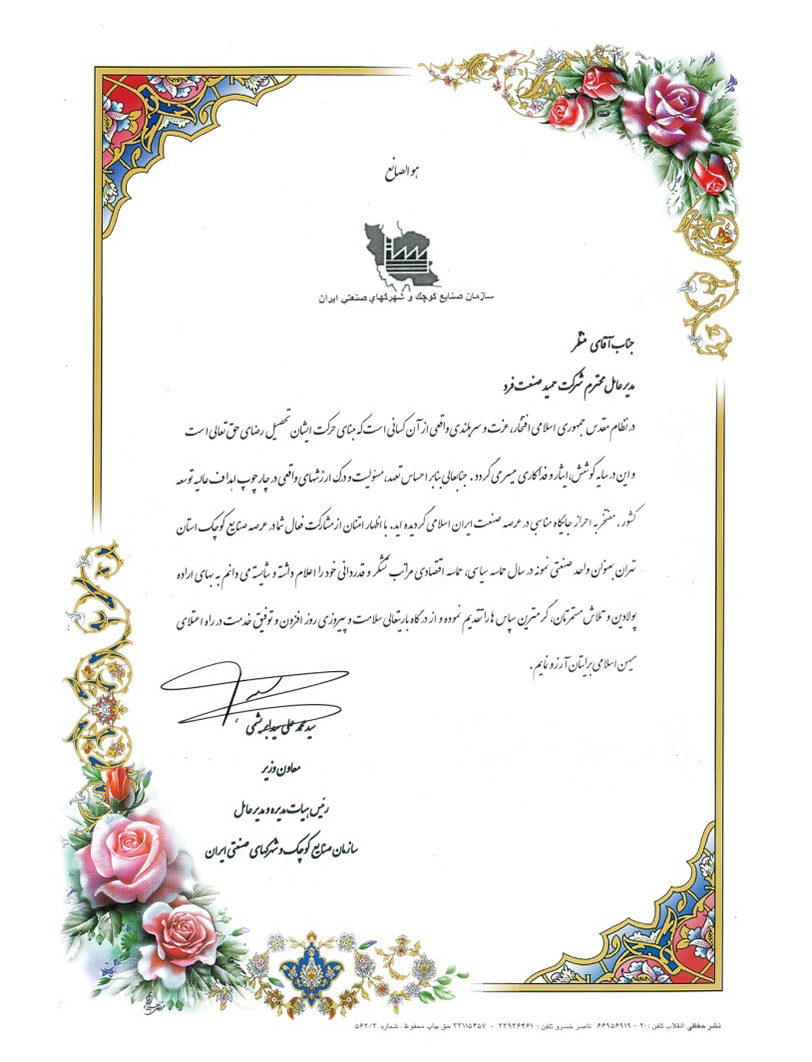 هوالصانع
سازمان صنایع کوچک و شهرکهای صنعتی ایران
جناب آقای منظر
مدیرعامل محترم شرکت حمید صنعت فرد
در نظام مقدس جمهوری اسلامی افتخار، عزت و سربلندی واقعی از آن کسانی است که مبنای حرکت ایشان تحصیل رضای حق تعالی است
و این در سایه کوشش، ایثار و فداکاری میسر می گردد . جنابعالی بنابر احساس تعهد، مسئولیت و درک ارزشهای واقعی در چارچوب اهداف عالیه توسعه
کشور ، مفتخر به احراز جایگاه مناسبی در عرصه صنعت ایران اسلامی گردیده اید. با اظهار امتنان از مشارکت فعال شما در عرصه صنایع کوچک استان
تهران بعنوان واحد صنعتی نمونه در سال حماسه سیاسی، حماسه اقتصادی مراتب تشکر و قدردانی خود را اعلام داشته و شایسته می دانم به بهای اراده
پولادین و تلاش مستمرتان، گرمترین سپاس ها را تقدیم نموده و از درگاه باریتعالی سلامت و پیروزی روز افزون و توفیق خدمت در راه اعتلای
میهن اسلامی برایتان آرزو نمایم .
سید محمد علی سید ابریشمی
معاون وزیر
رئیس هیات مدیره و مدیرعامل
سازمان صنایع کوچک و شهرکهای صنعتی ایران
نشر حفظی :انقلاب تلفن : ۲۰ - ۶۶۹۵۶۹۱۹ ناصر خسرو تلفن : ۳۳۹۳۶۴۶۱ - ۳۳۱۱۵۴۵۷ حق چاپ محفوظ . شماره ۵۶۲/۳